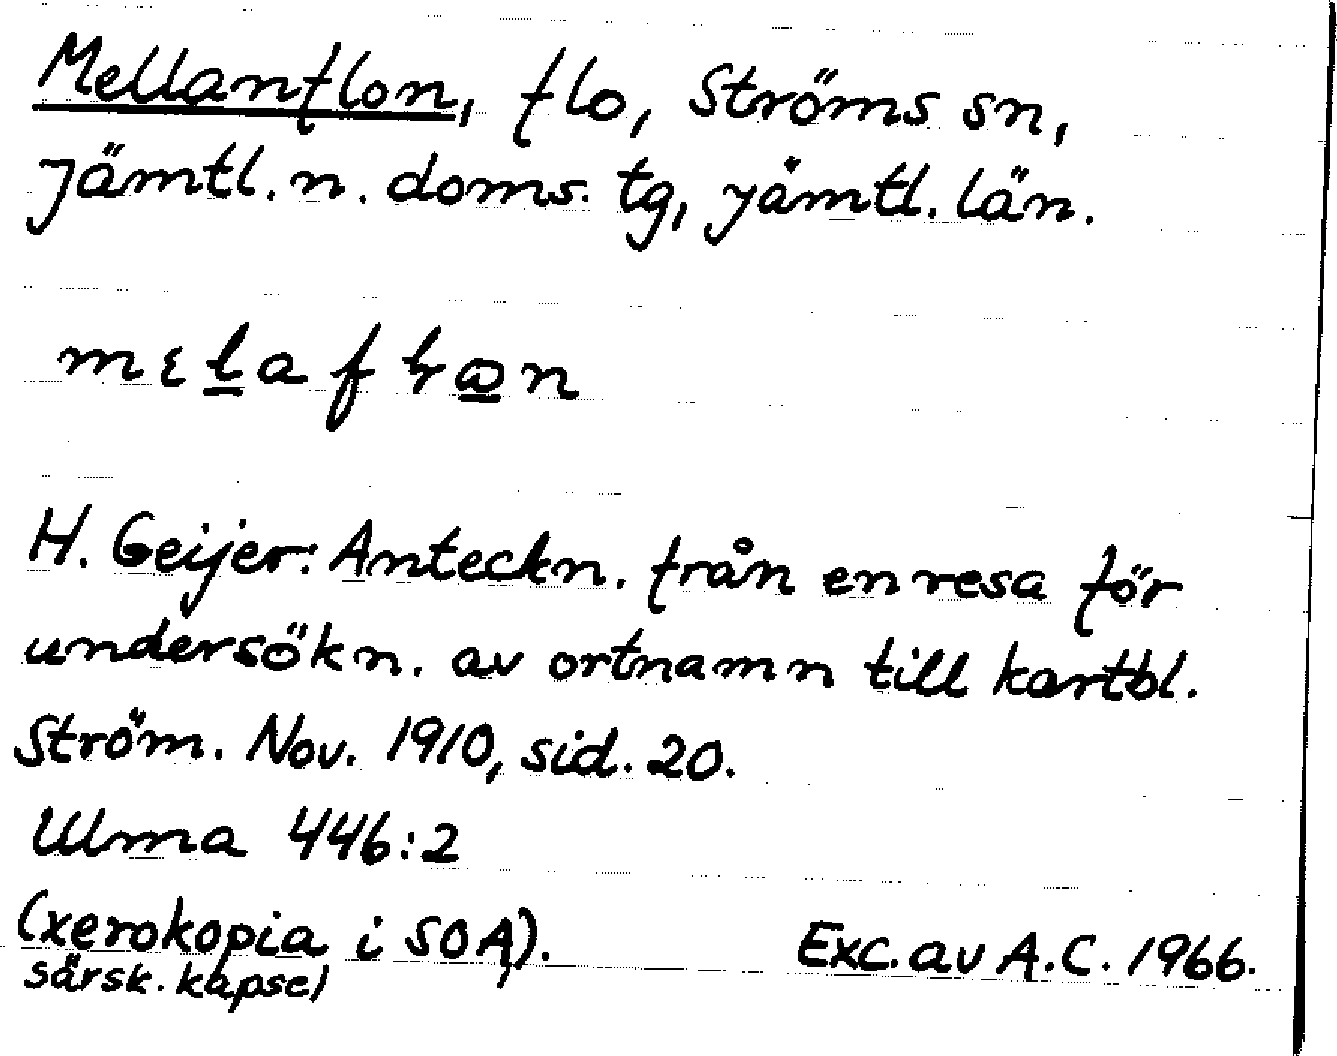 Mellanflon, flo, Ströms sn,
Jämtl. n. doms. tg, Jämtl. län.
mɛl̲afɬꙍ̲n
H. Geijer: Anteckn. från en resa för
undersökn. av ortnamn till kartbl.
Ström. Nov. 1910, sid. 20.
Ulma 446:2
(xerokopia i SOA). Exc. av A.C. 1966.
särsk. kapsel